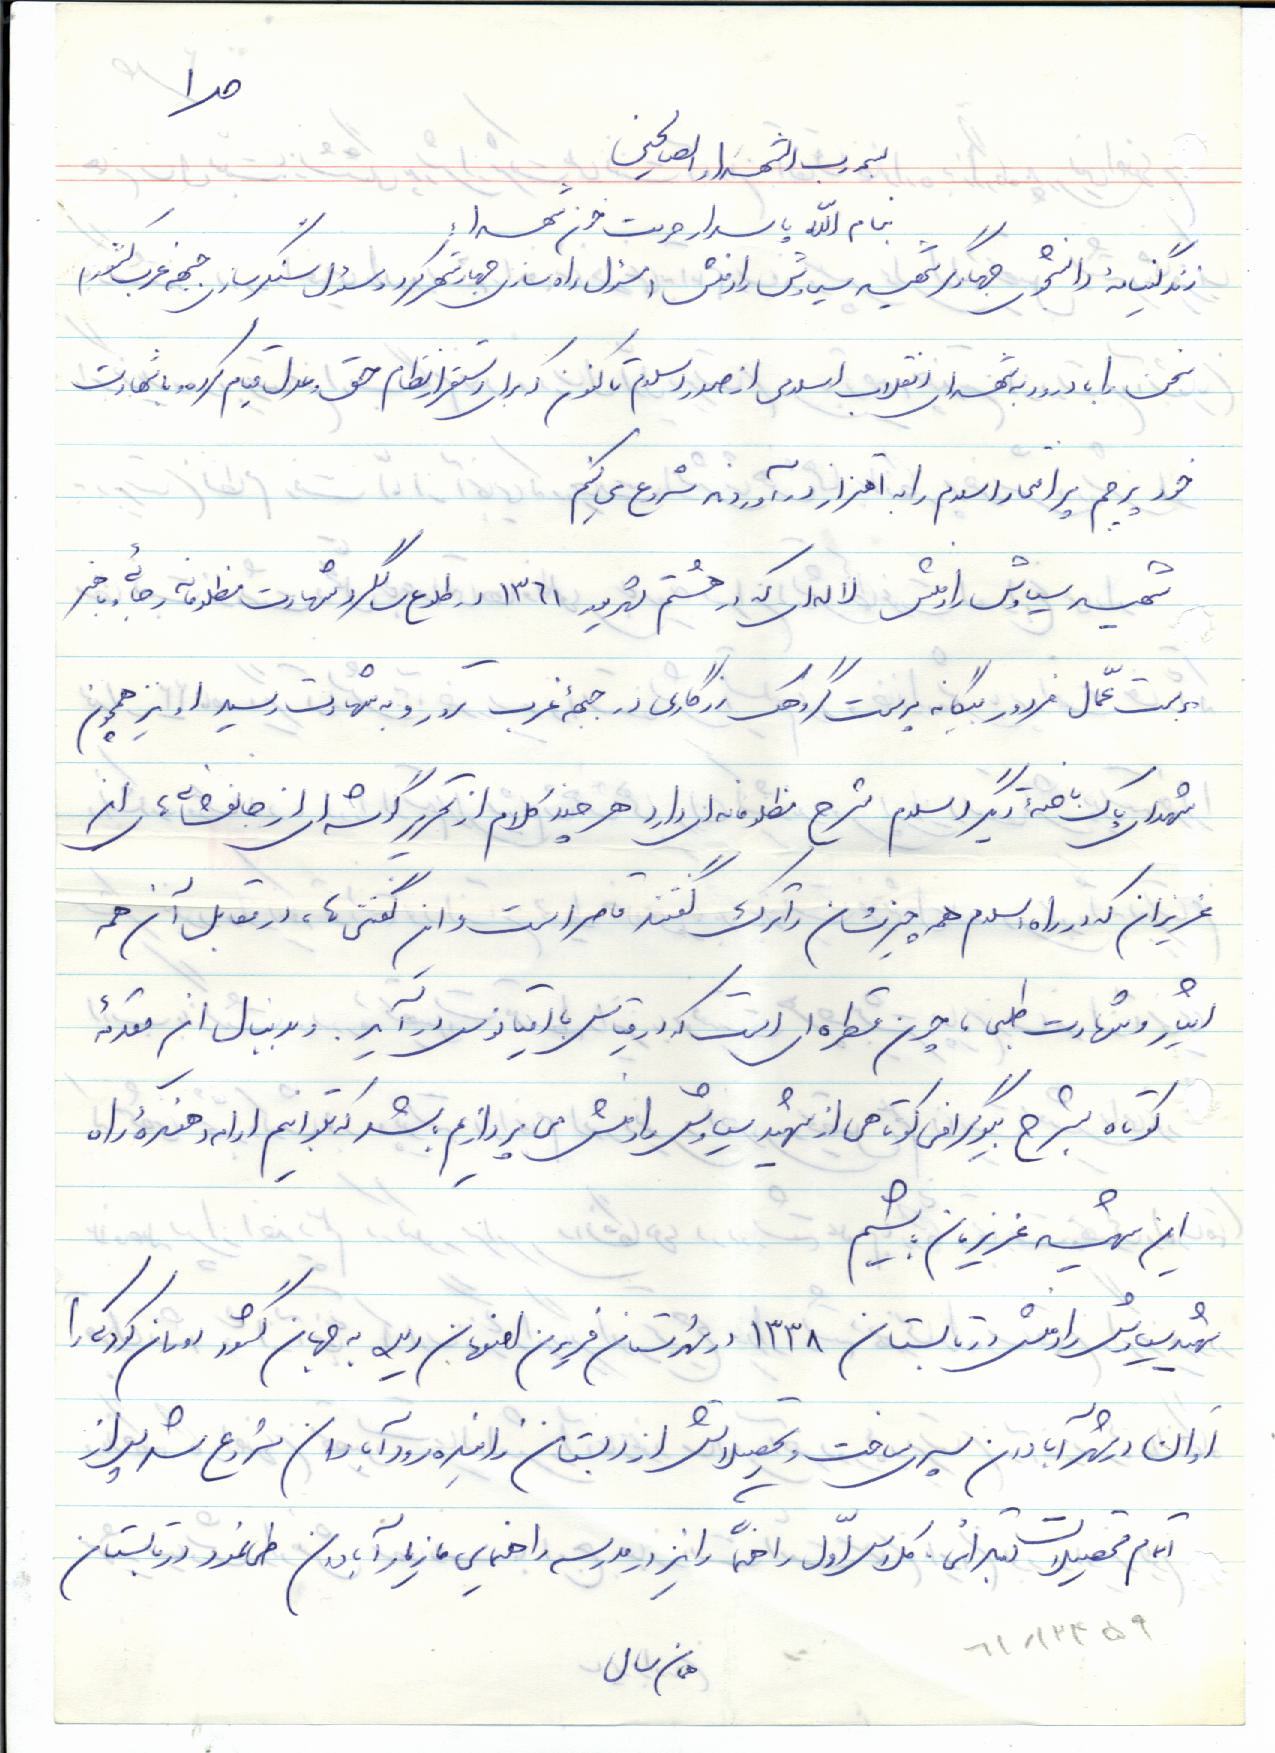 ص ۱
بسم رب الشهداء و الصالحین
بنام الله پاسدار حرمت خون شهداء
زندگینامهٔ دانشجوی جهادگر شهید سیاوش رادمنش مسئول راه سازی جهاد شهرکرد و مسئول سنگرسازی جبهه غرب کشور
سخن را با درود به شهدای انقلاب اسلامی از صدر اسلام تا کنون که برای استقرار نظام حق و عدل قیام کرده و با شهادت
خود پرچم پر افتخار اسلام را به اهتزاز در آوردند شروع می کنم
شهید سیاوش رادمنش لاله ای که در هشتم شهریور ۱۳۶۱ در طلوع سالگرد شهادت مظلومانه رجائی و باهنر
بدست عمّال مزدور بیگانه پرست گروهک رزگاری در جبههٔ غرب ترور و به شهادت رسید او نیز همچون
شهدای پاک باختهٔ دیگر اسلام شرح مظلومانه ای دارد هر چند کلام از تحریر گوشه ای از جانفشانی های این
عزیزان که در راه اسلام همه چیزشان را ترک گفتند قاصر است و این گفتنی ها، در مقابل آن همه
ایثار و شهادت طلبی ها چون قطره ای است که در قیاس با اقیانوس در آید. و بدنبال این مقدمهٔ
کوتاه بشرح بیوگرافی کوتاهی از شهید سیاوش رادمنش می پردازیم باشد که بتوانیم ادامه دهندهٔ راه
این شهید عزیزمان باشیم
شهید سیاوش رادمنش در تابستان ۱۳۳۸ در شهرستان فریدن اصفهان دیده به جهان گشود دوران کودکی را
در شهر آبادان سپری ساخت و تحصیلاتش از دبستان زاینده رود آبادان شروع شد پس از
اتمام تحصیلات ابتدائی، کلاس اوّل راهنمائی را نیز در مدرسه راهنمایی مازیار آبادان طی نمود در تابستان
همان سال